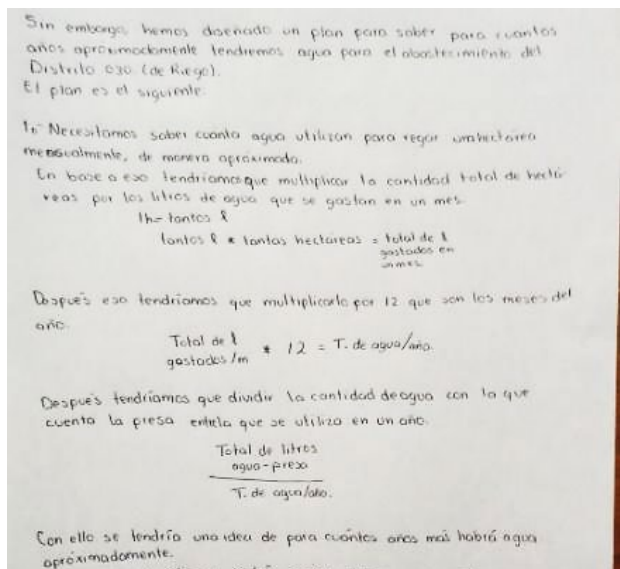 Sin embargo, hemos diseñado un plan para saber para cuantos
años aproximadamente tendremos agua para el abastecimiento del
Distrito 030 (de Riego).
El plan es el siguiente:
1.- Necesitamos saber cuanta agua utilizan para regar una hectárea
mensualmente, de manera aproximada.
En base a eso tendríamos que multiplicar la cantidad total de hectá-
reas por los litros de agua que se gastan en un mes.
1h = tantos l
tantos l * tantas hectareas = total de l
gastados en
un mes
Después eso tendríamos que multiplicarlo por 12 que son los meses del
año.
Total de l
gastados/m * 12 = T. de agua/año.
Después tendríamos que dividir la cantidad de agua con la que
cuenta la presa entre la que se utiliza en un año.
Total de litros
agua-presa
T. de agua/año.
Con ello se tendría una idea de para cuántos años más habrá agua
apróximadamente.